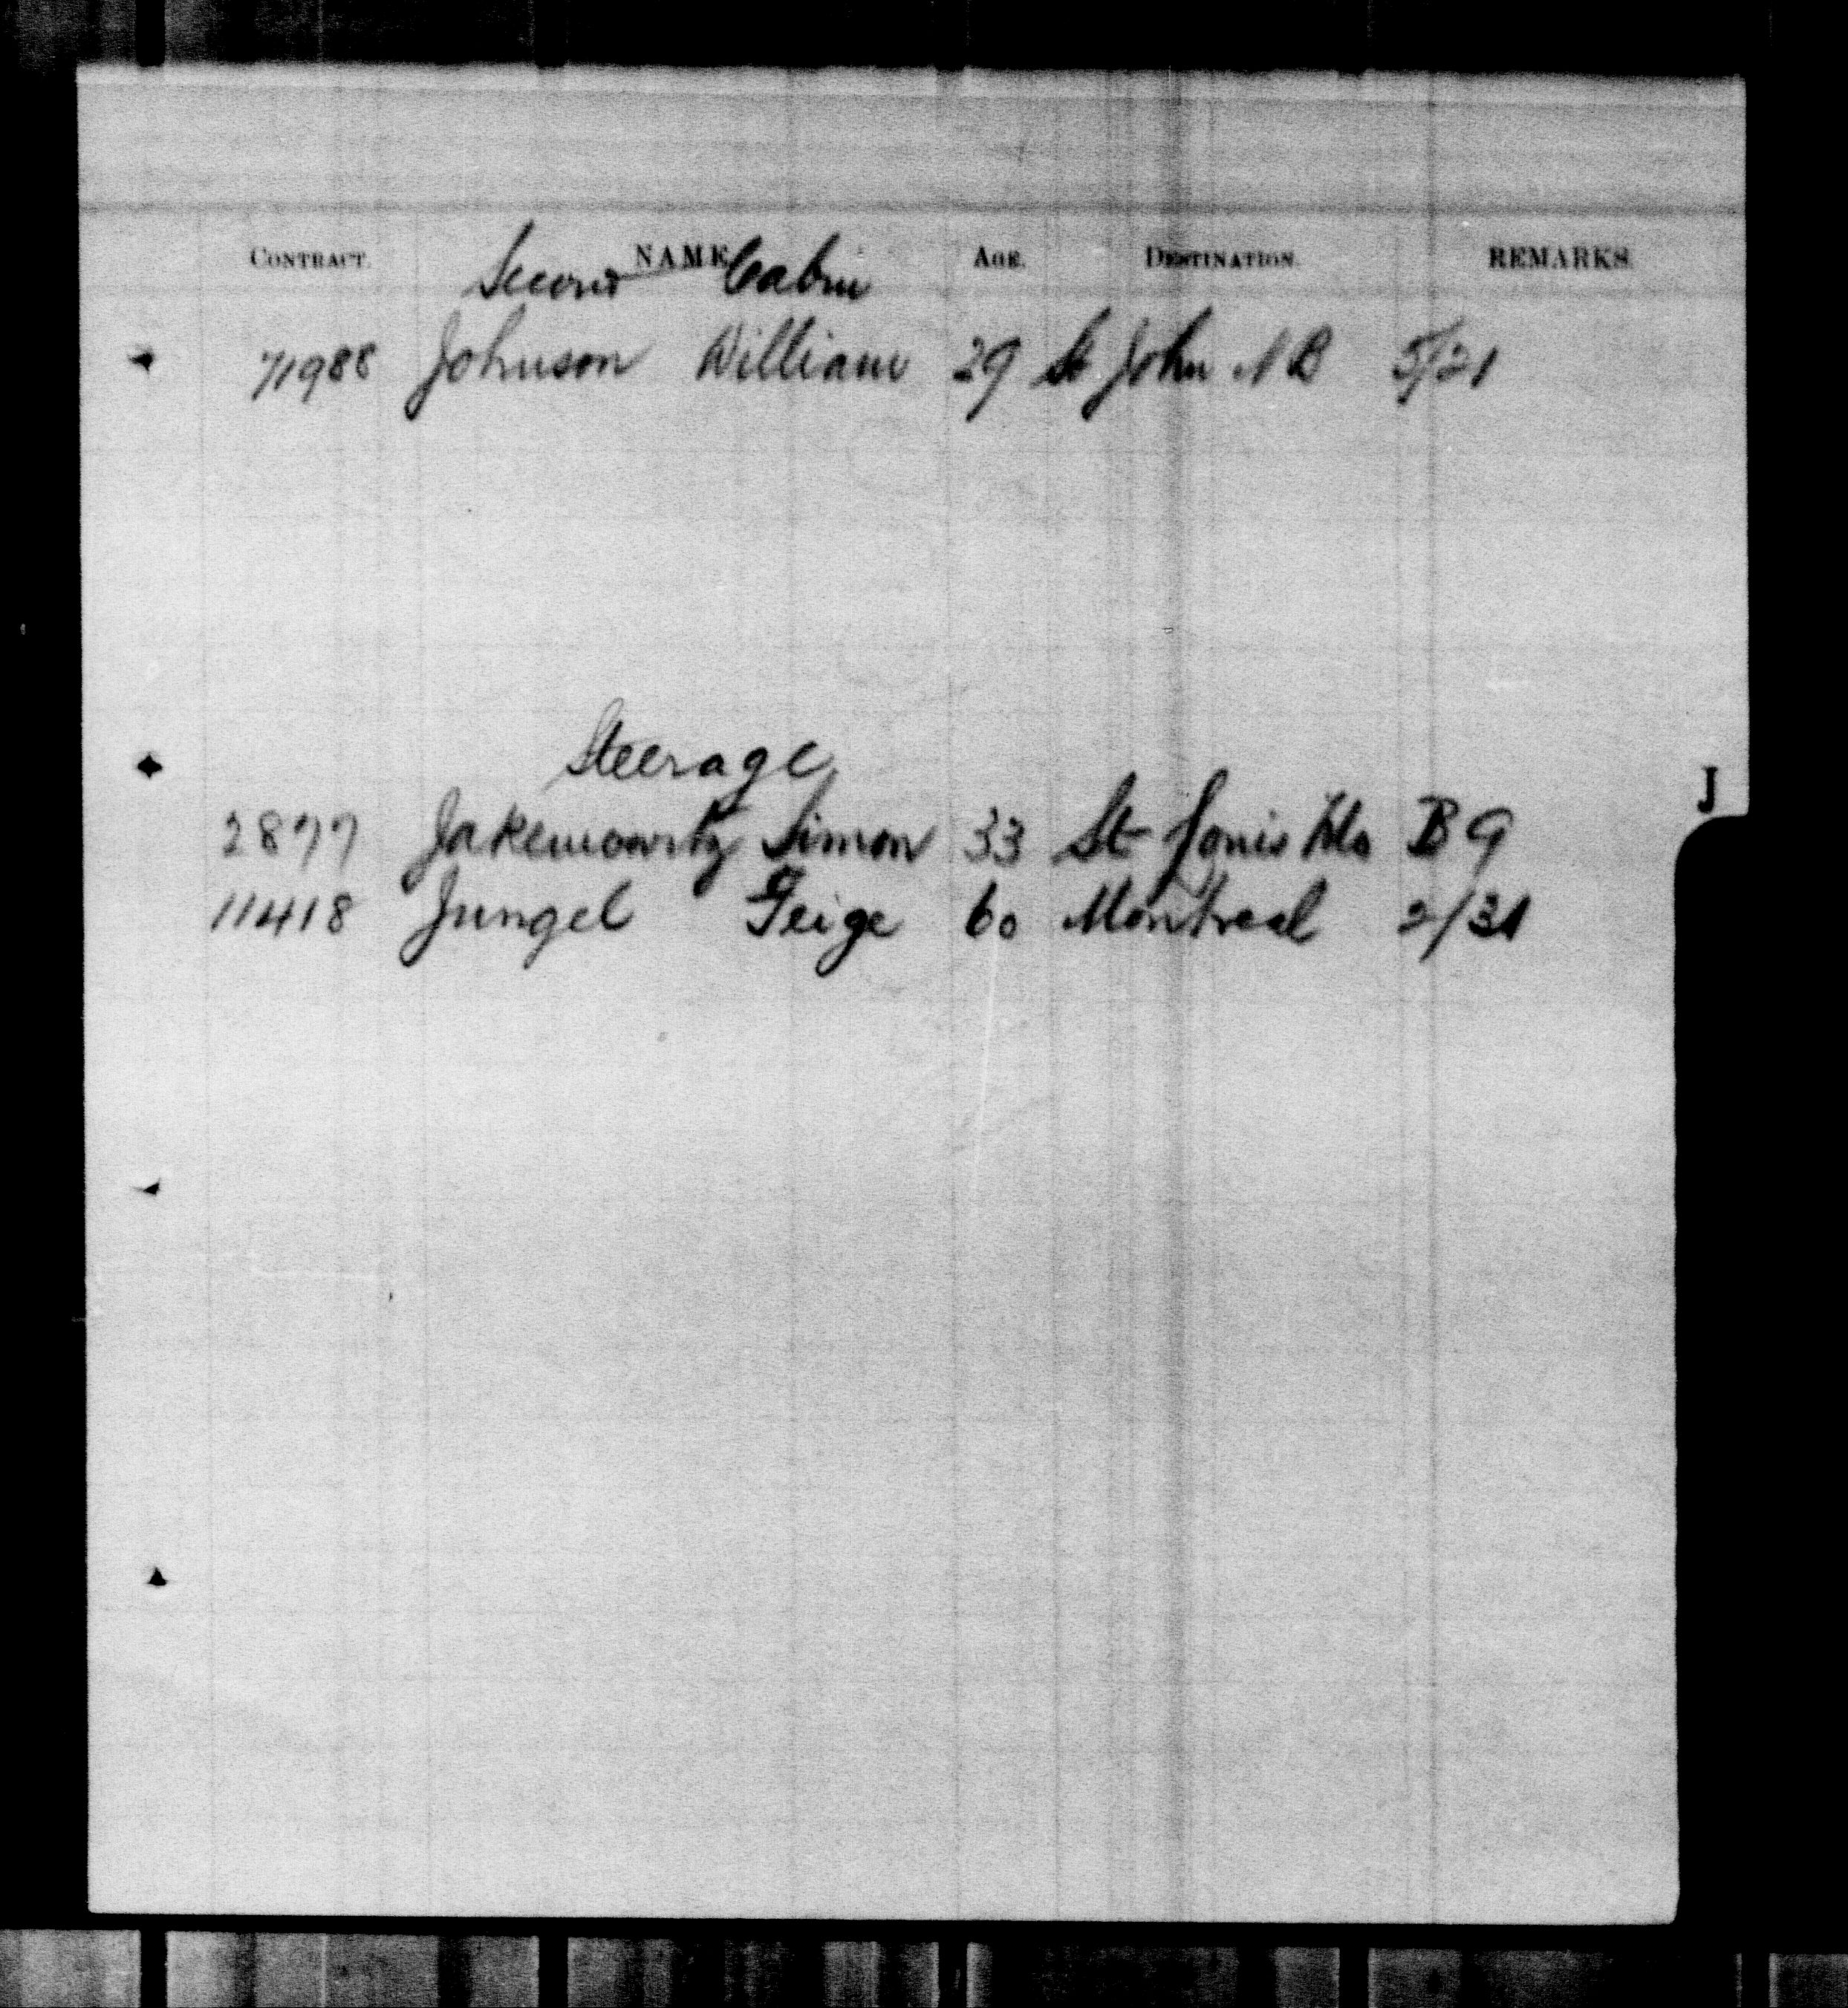 CONTRACT. NAME AGE. DESTINATION. REMARKS.
Second Cabin
71988 Johnson William 29 St John N B 5/21
Steerage
J
2877 Jakemowitz Simon 33 St Louis Mo B 9
11418 Jungel Feige 60 Montreal 2/31